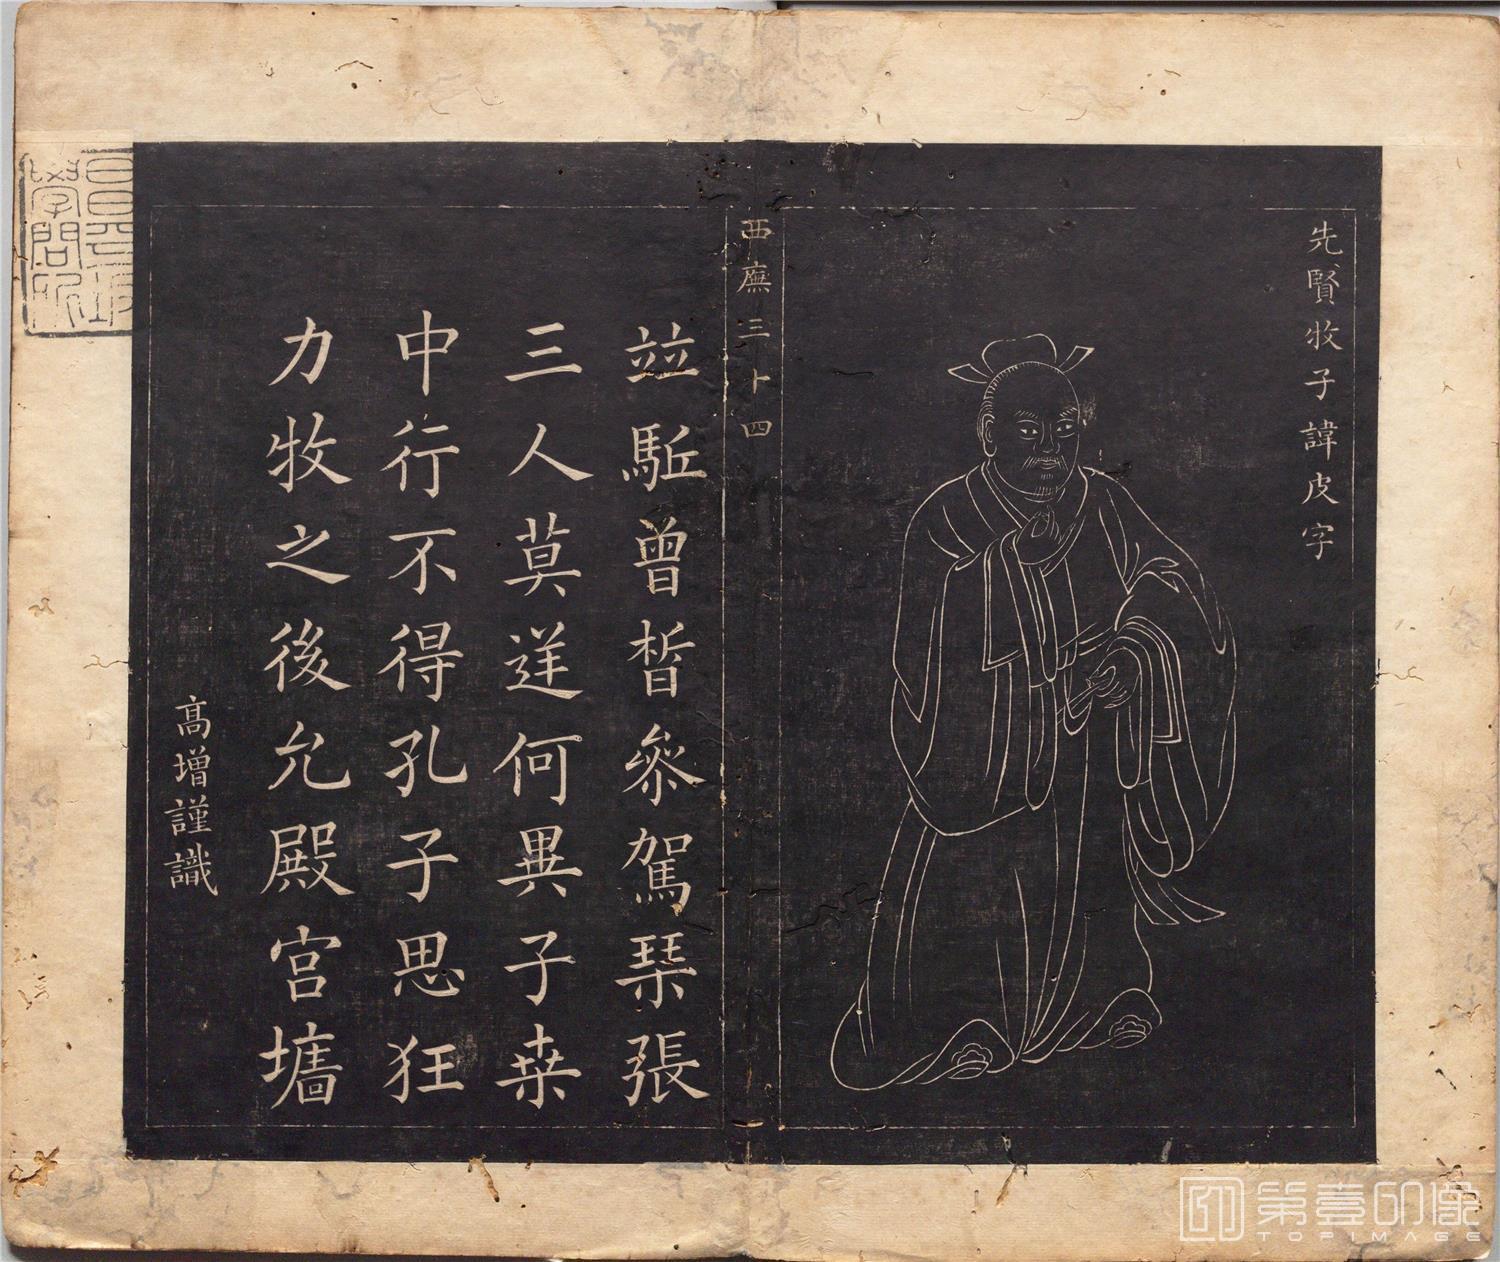 先賢牧子諱皮字
西廡三十四
竝駈曾晳參駕琹張
三人莫逆何異子桒
中行不得孔子思狂
力牧之後允殿宫墻
高增謹識
學問
第壹印像
TOPIMAGE